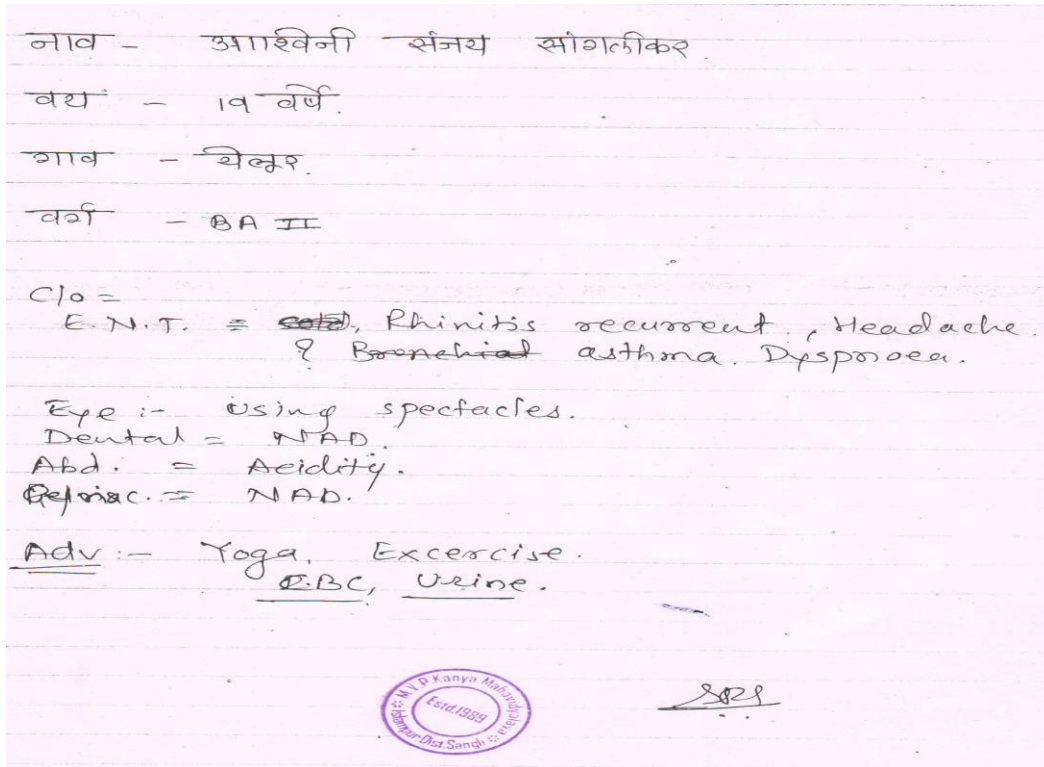 नाव - आश्विनी संजय सांगलीकर
वय - १९ वर्षे.
गाव - येलूर.
वर्ग - BA II
C/o =
E.N.T. = cold, Rhinitis recurrent, Headache.
? Bronchial asthma. Dyspnoea.
Eye :- Using spectacles.
Dental = NAD.
Abd. = Acidity.
= NAD.
Adv :- Yoga, Excercise.
CBC, Urine.
M.V.P Kanya Mahavidyalaya
Islampur Dist.Sangli
Estd.1989